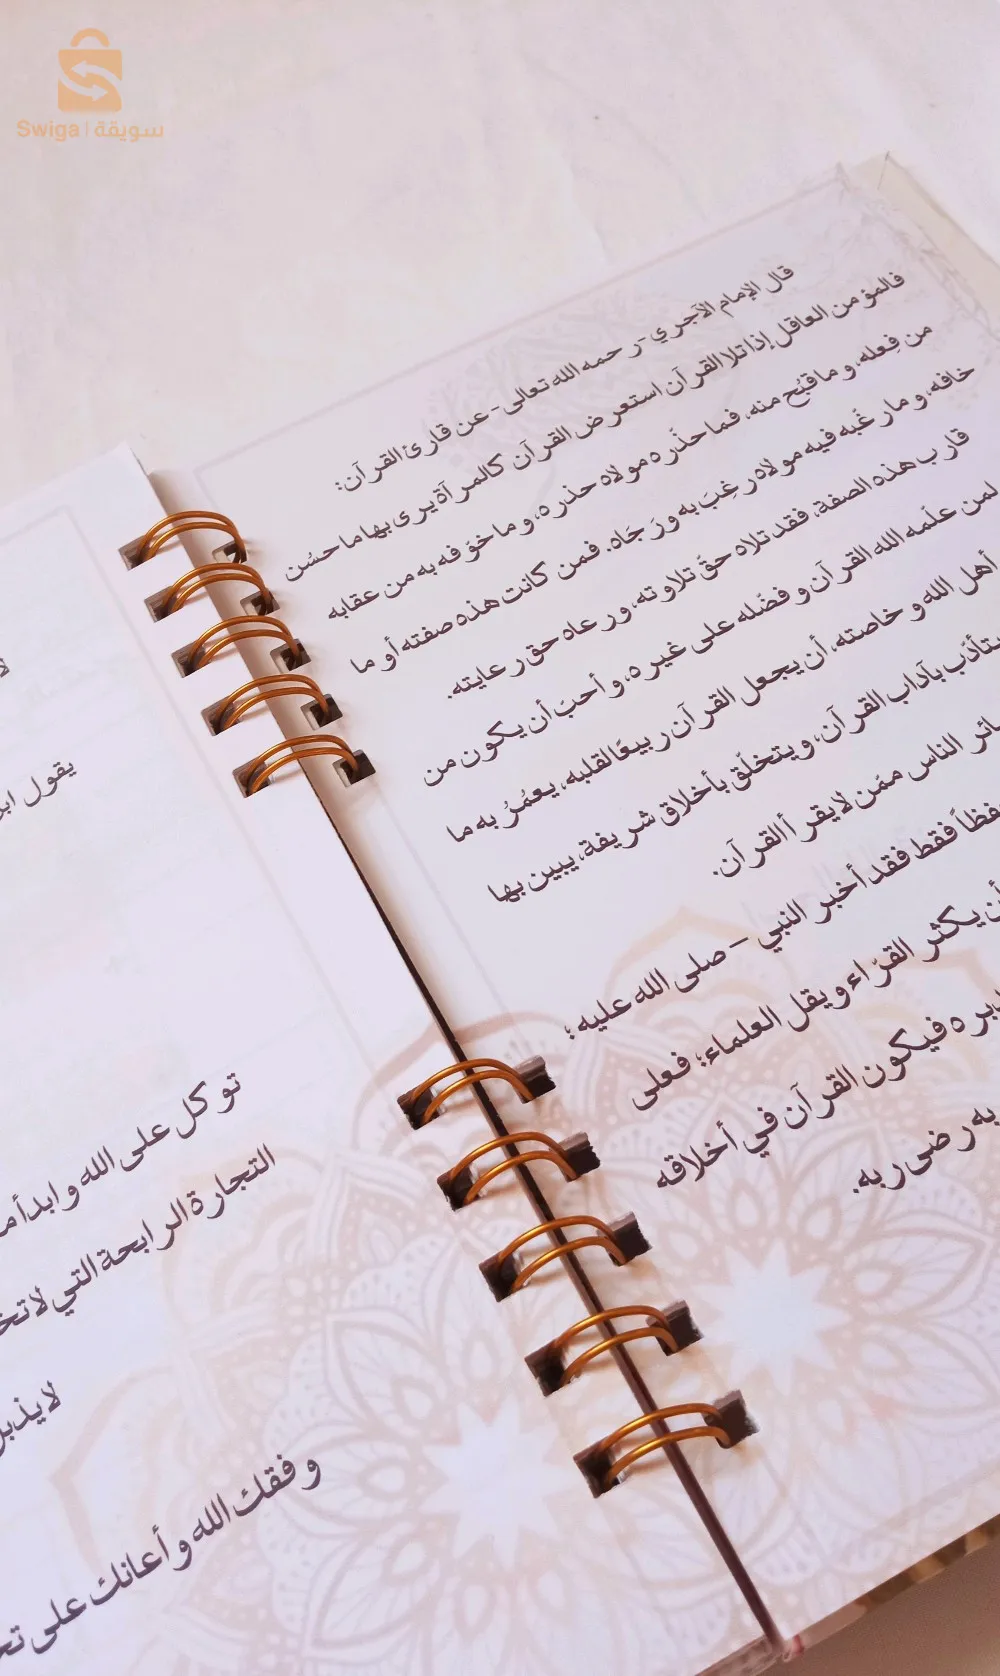 Swiga | سويقة
قال الإمام الآجري - رحمه الله تعالى - عن قارئ القرآن:
فالمؤمن العاقل إذا تلا القرآن استعرض القرآن كالمرآة يرى بها ما حسُن
من فِعله، وما قبُح منه، فما حذّره مولاه حذره، وما خوّفه به من عقابه
خافه، وما رغّبه فيه مولاه رغِبَ به ورَجَاه. فمن كانت هذه صفته أو ما
قارب هذه الصفة، فقد تلاه حقّ تلاوته، ورعاه حق رعايته.
لمن علّمه الله القرآن وفضّله على غيره، وأحبّ أن يكون من
أهل الله وخاصته، أن يجعل القرآن ربيعًا لقلبه، يعمُرُ به ما
بآداب القرآن، ويتخلّق بأخلاق شريفة، يبين بها
الناس ممّن لا يقرأ القرآن.
فقط فقد أخبر النبي – صلى الله عليه:
أن يكثر القرّاء ويقل العلماء؛ فعلى
فيكون القرآن في أخلاقه
به رضى ربه.
يقول
توكل على الله وابدأ
التجارة الرابحة التي
وفقك الله وأعانك على